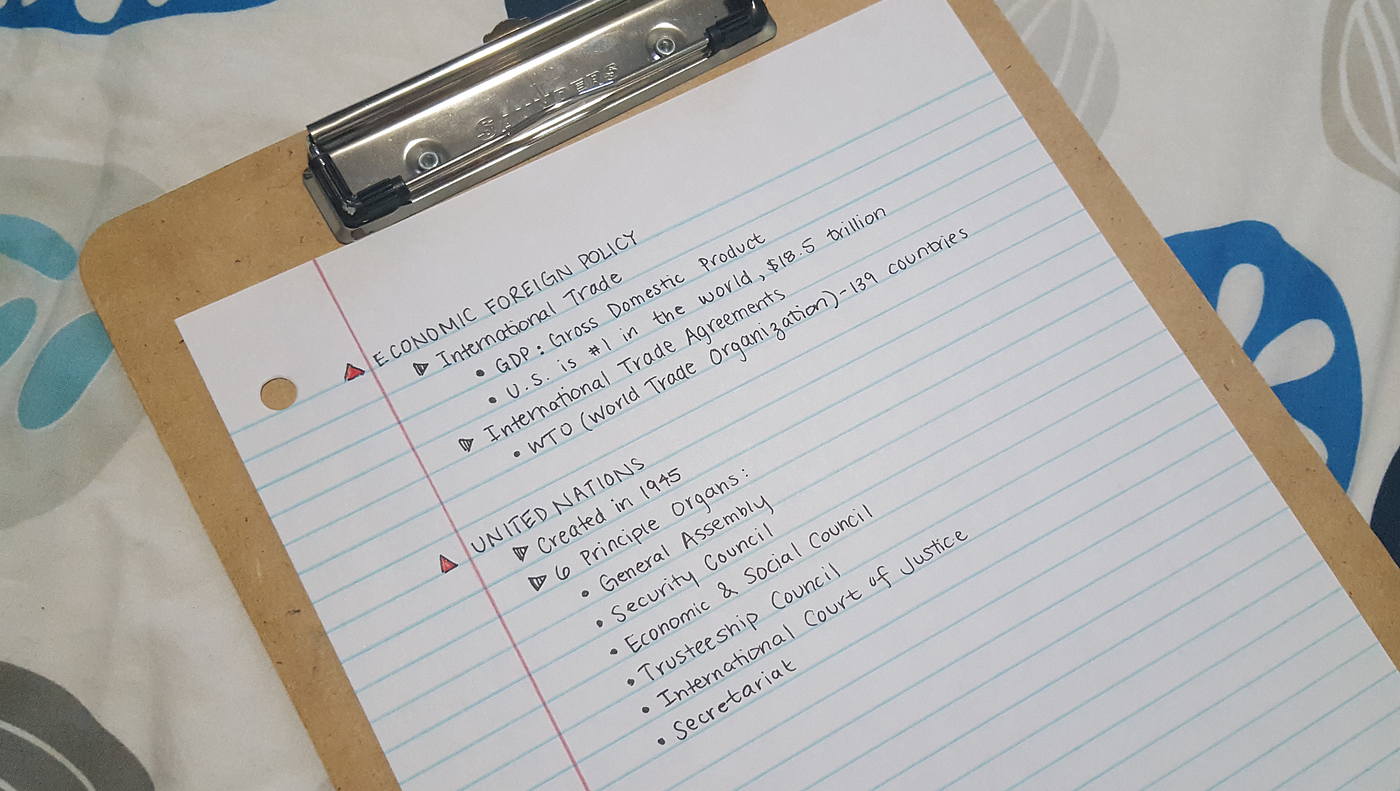 SAUNDERS
ECONOMIC FOREIGN POLICY
International Trade
• GDP: Gross Domestic Product
• U.S. is #1 in the world, $18.5 trillion
International Trade Agreements
• WTO (World Trade Organization)-139 countries
UNITED NATIONS
Created in 1945
6 Principle Organs:
• General Assembly
• Security Council
• Economic & Social Council
• Trusteeship Council
• International Court of Justice
• Secretariat